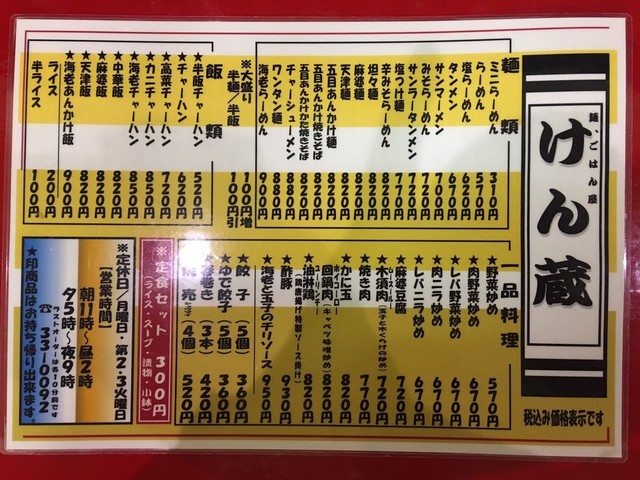 麺、ごはん屋
けん蔵
税込み価格表示です
麺類
ミニらーめん 310円
らーめん 570円
塩らーめん 620円
タンメン
サンマーメン 700円
みそらーめん 720円
サンラータンメン
塩つけ麺
辛みそらーめん
坦々麺
麻婆麺 820円
天津麺 820円
五目あんかけ麺
五目あんかけ焼きそば
五目あんかけかた焼きそば
チャーシューメン 880円
ワンタン麺
海老らーめん 900円
※大盛り 100円増
半麺/半飯 100円引
飯類
★半飯チャーハン 520円
★チャーハン 620円
★高菜チャーハン 720円
★カニチャーハン 850円
★海老チャーハン 850円
★中華飯 820円
★麻婆飯 820円
★天津飯 820円
★海老あんかけ飯 900円
ライス 200円
半ライス 100円
一品料理
★野菜炒め 570円
★肉野菜炒め 670円
★レバ野菜炒め 670円
★肉ニラ炒め 670円
★レバニラ炒め 670円
★麻婆豆腐 770円
★木須肉(玉子ときくらげの炒め) 770円
★焼き肉 770円
★かに玉 820円
★回鍋肉(キャベツ味噌炒め) 820円
★油淋鶏(鶏唐揚げ特製ソース掛け) 820円
★酢豚 930円
★海老と玉子のチリソース 950円
★餃子(5個) 360円
★ゆで餃子(5個) 360円
★春巻き(3本) 420円
★焼売(4個) 520円
※定食セット 300円
(ライス・スープ・漬物・小鉢)
※定休日/月曜日・第2・3火曜日
【営業時間】
朝11時〜昼2時
夕5時〜夜9時
ラストオーダー 10分前です
☎33-0092
★印商品はお持ち帰り出来ます。